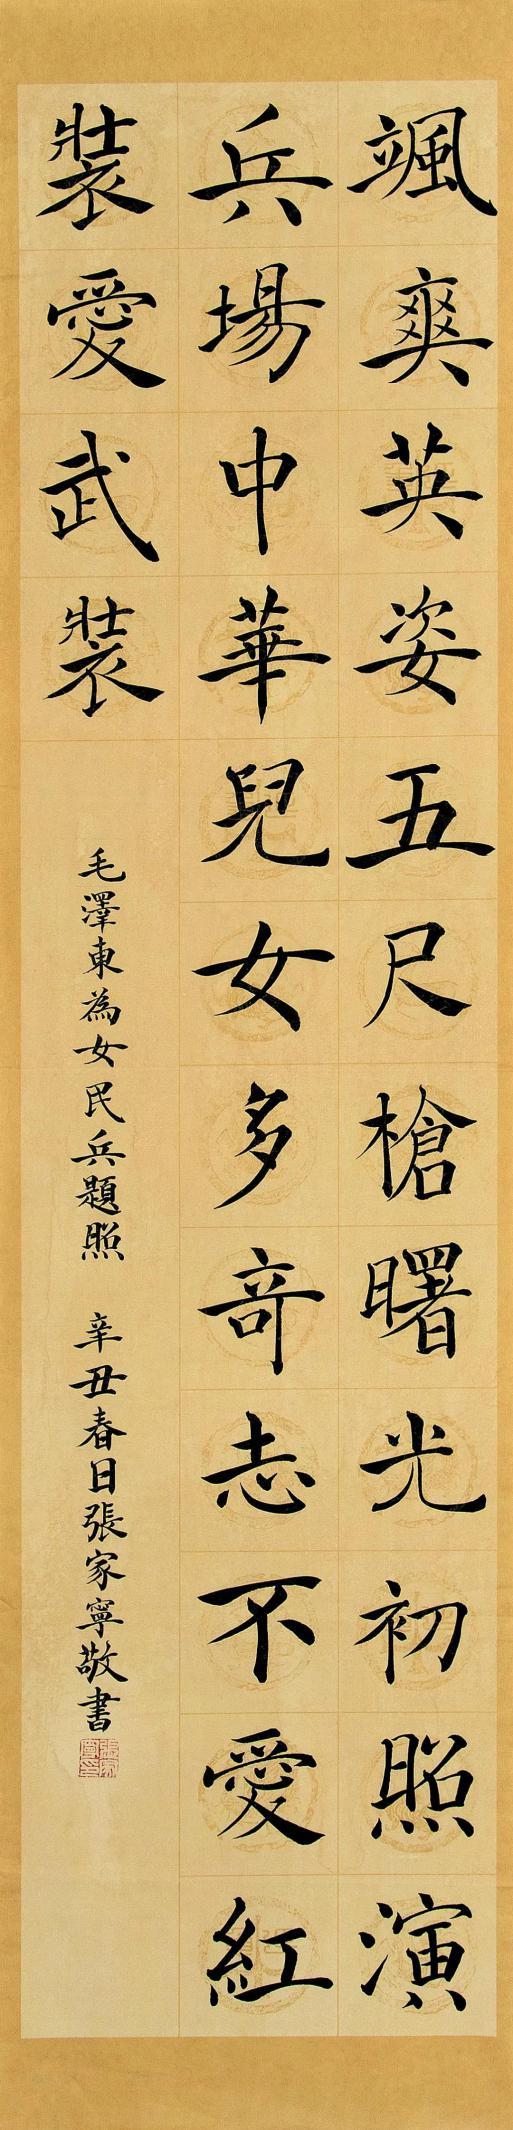 颯爽英姿五尺槍曙光初照演
兵場中華兒女多奇志不愛紅
裝愛武裝
毛澤東為女民兵題照 辛丑春日張家寧敬書